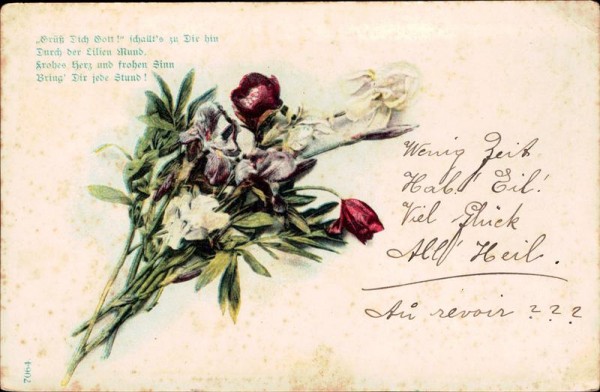 „Grüß Dich Gott!“ schallt's zu Dir hin
Durch der Lilien Mund,
Frohes Herz und frohen Sinn
Bring' Dir jede Stund!
Wenig Zeit
Hab.' Eil.'
Viel Glück
All' Heil.
Aů revoir ???
7064